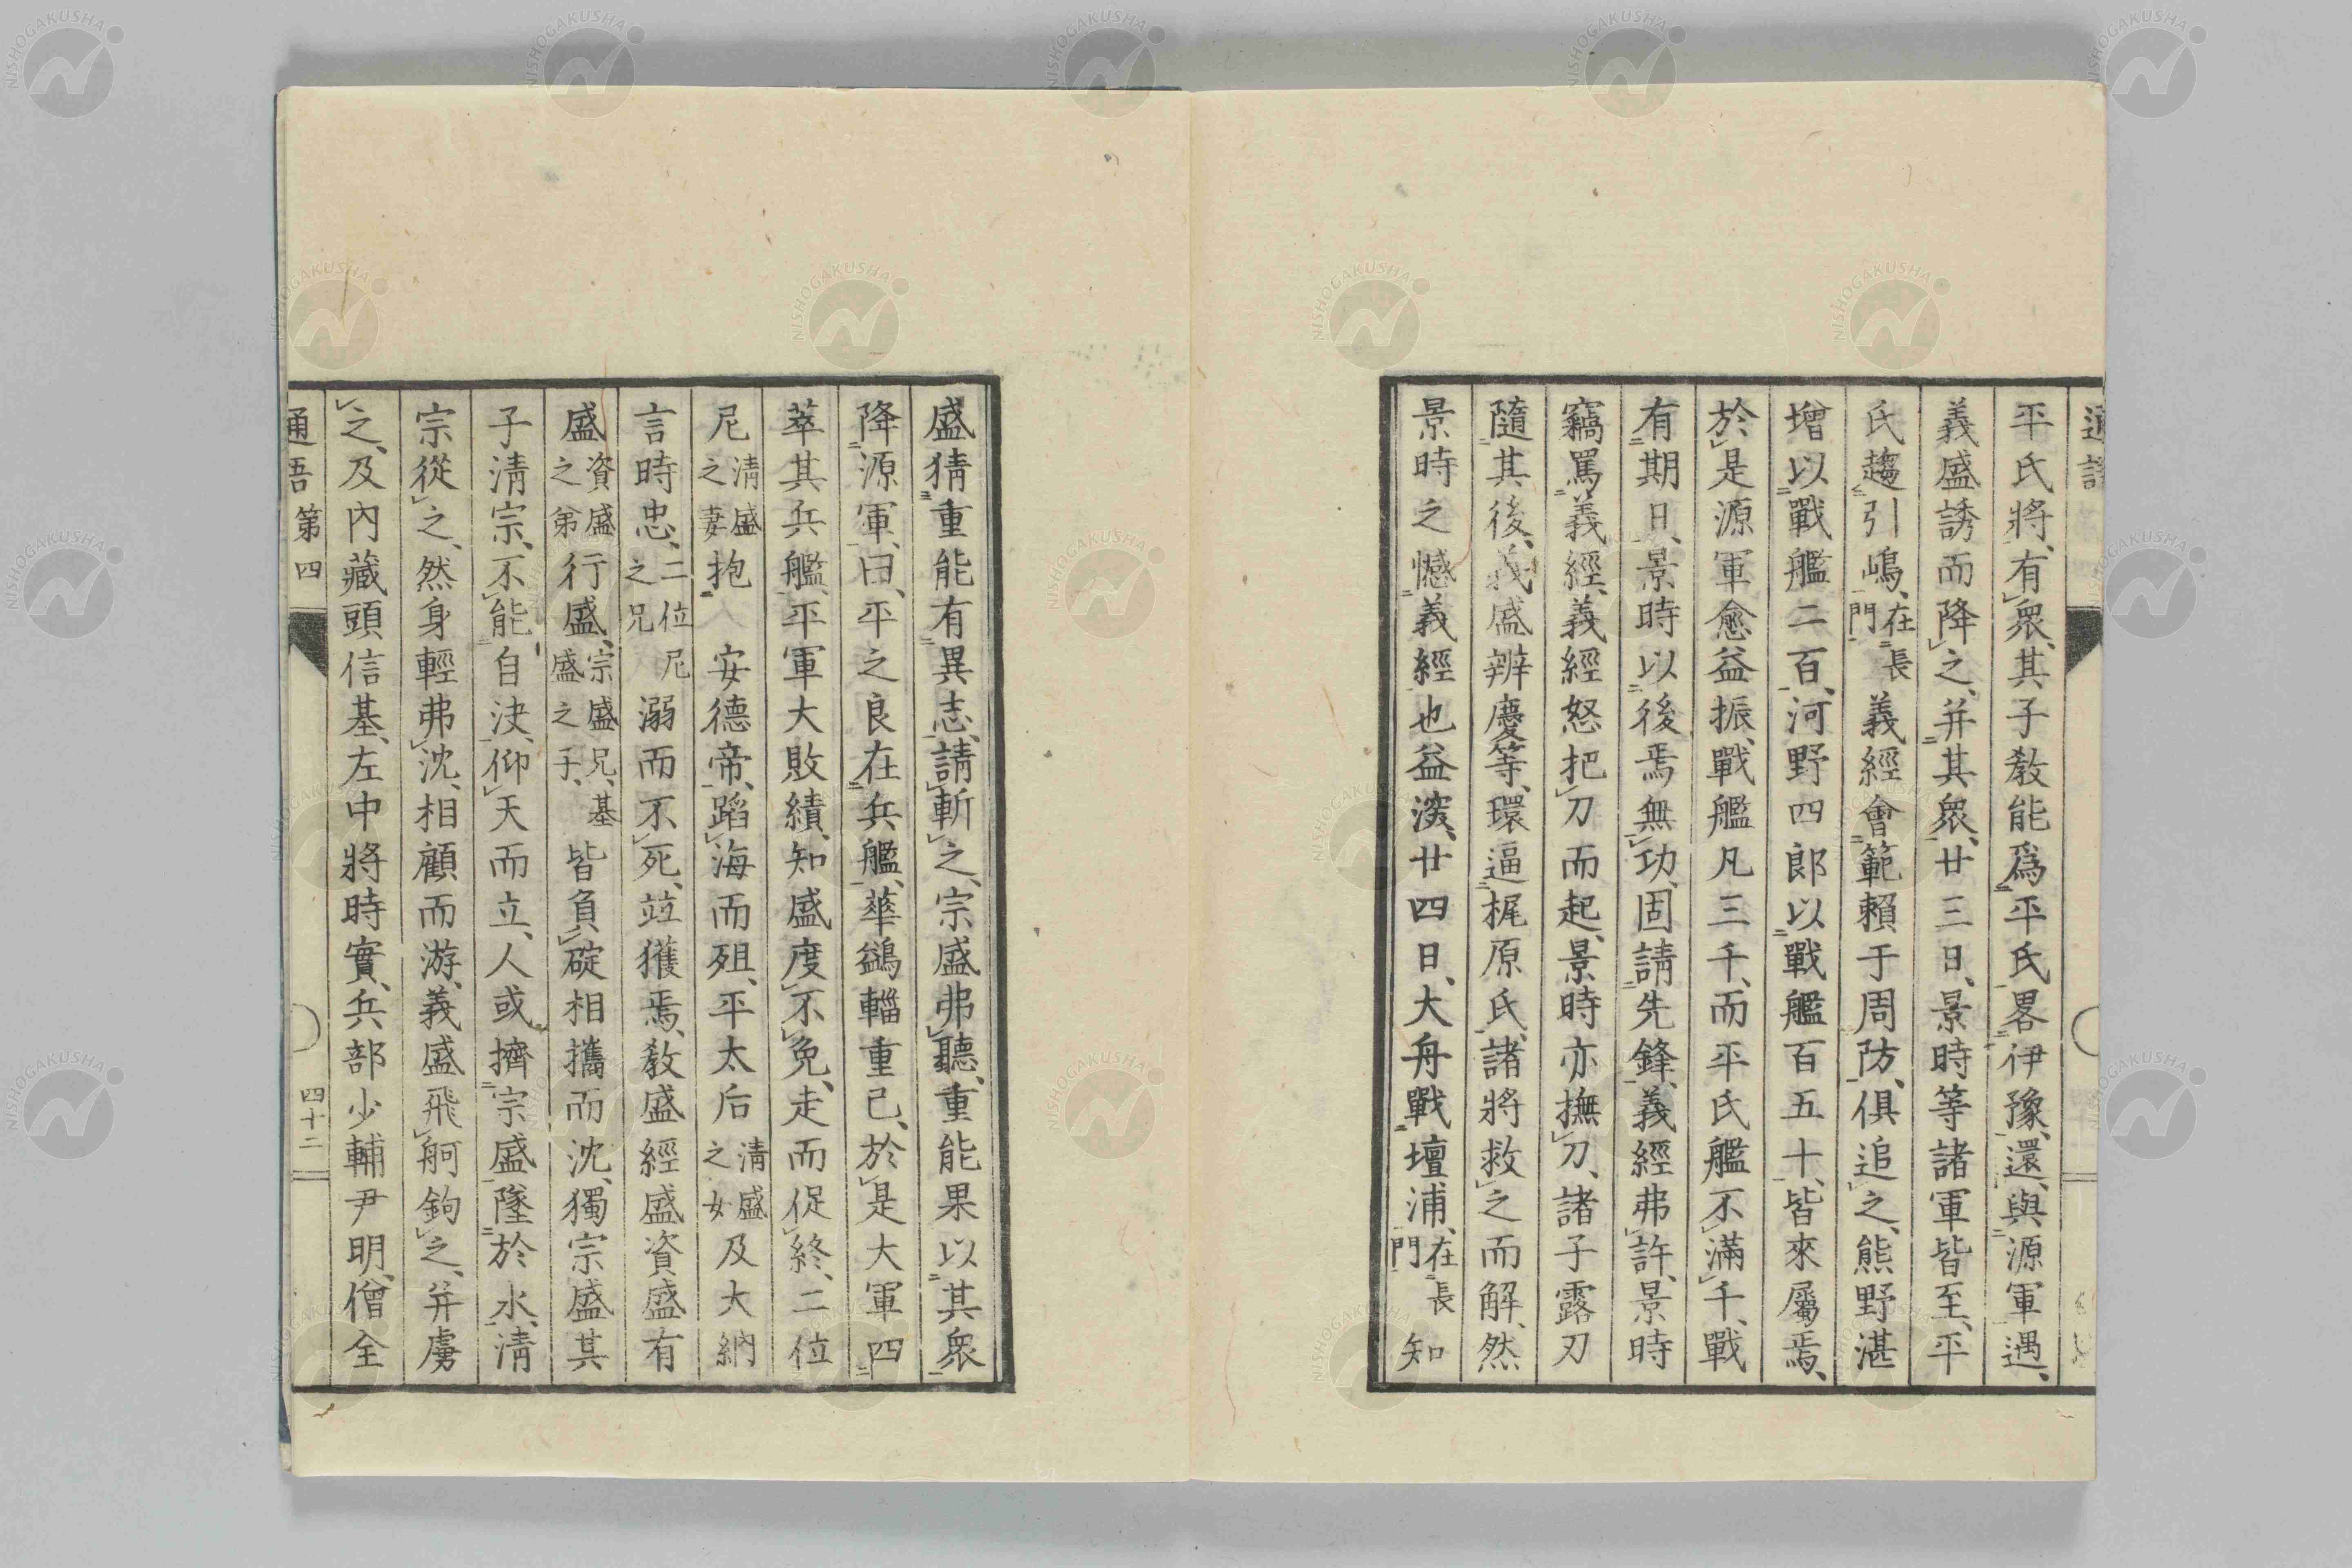 平氏將、有衆、其子教能爲平氏畧伊豫、還、與源軍遇、
義盛誘而降之、并其衆、廿三日、景時等諸軍皆至、平
氏趨引嶋、在長門義經會範賴于周防、俱追之、熊野湛
增以戰艦二百、河野四郎以戰艦百五十、皆來屬焉、
於是源軍愈益振、戰艦凡三千、而平氏艦不滿千、戰
有期日、景時以後焉無功、固請先鋒、義經弗許、景時
竊罵義經、義經怒把刀而起、景時亦撫刀、諸子露刃
隨其後、義盛辨慶等、環逼梶原氏、諸將救之而解、然
景時之憾義經也益深、廿四日、大舟戰壇浦、在長門知
盛猜重能有異志、請斬之、宗盛弗聽、重能果以其衆
降源軍、曰、平之良在兵艦、華鷁輜重已、於是大軍四
萃其兵艦、平軍大敗績、知盛度不免、走而促終、二位
尼清盛之妻抱安德帝、蹈海而殂、平太后清盛之女及大納
言時忠、二位尼之兄溺而不死、竝獲焉、教盛經盛資盛有
盛資盛之弟行盛、宗盛兄、基盛之子、皆負碇相攜而沈、獨宗盛其
子清宗、不能自決、仰天而立、人或擠宗盛墜於水、清
宗從之、然身輕弗沈、相顧而游、義盛飛舸鉤之、并虜
之、及內藏頭信基、左中將時實、兵部少輔尹明、僧全
通語第四
四十二
NISHOGAKUSHA